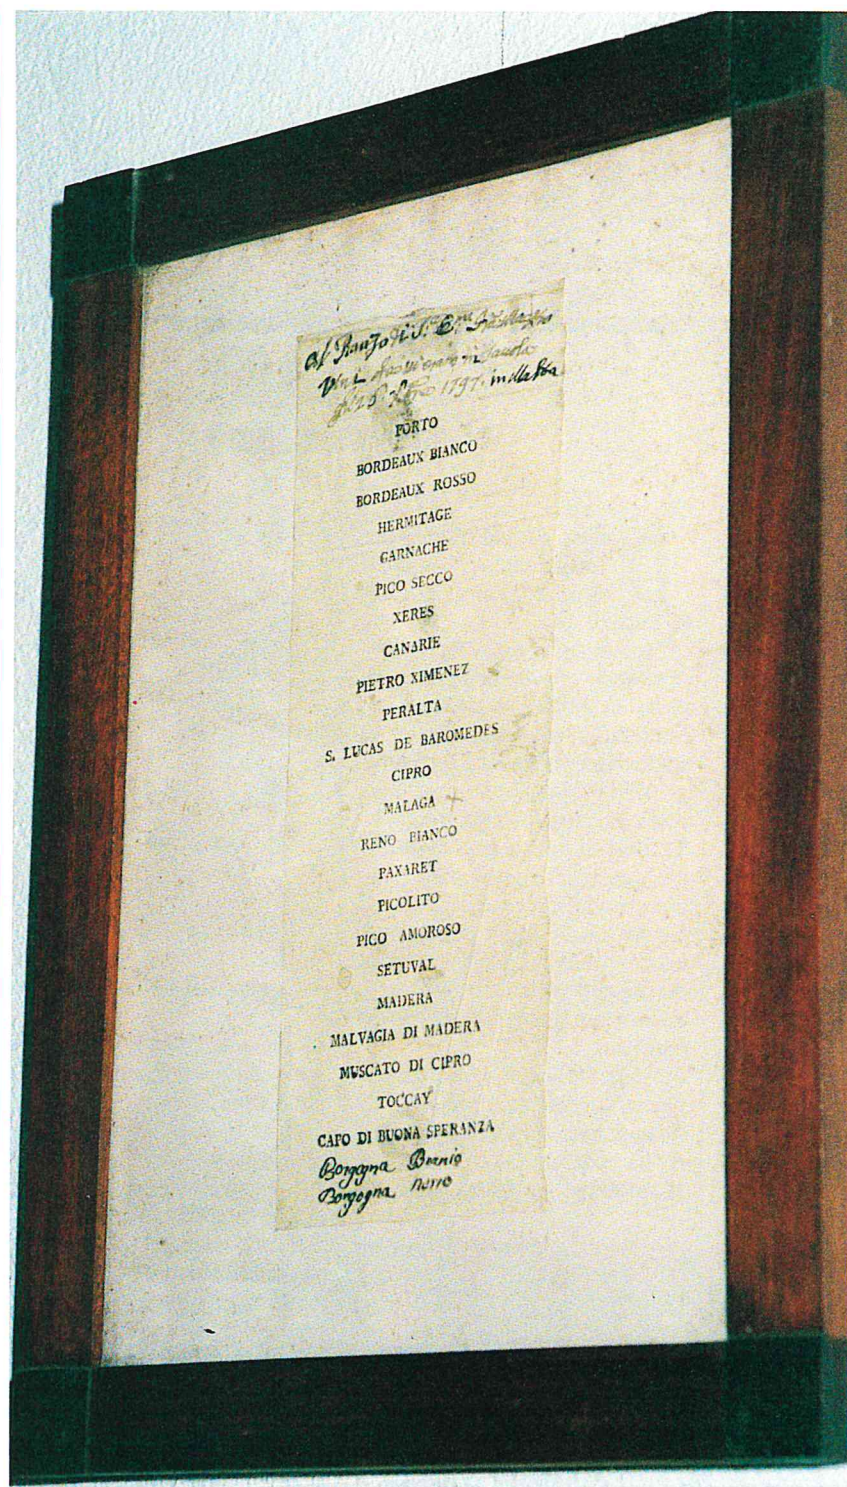 Al Pranzo di S.
Vini in tavola
1797. in Malta
PORTO
BORDEAUX BIANCO
BORDEAUX ROSSO
HERMITAGE
GARNACHE
PICO SECCO
XERES
CANARIE
PIETRO XIMENEZ
PERALTA
S. LUCAS DE BAROMEDES
CIPRO
MALAGA
RENO BIANCO
PAXARET
PICOLITO
PICO AMOROSO
SETUVAL
MADERA
MALVAGIA DI MADERA
MUSCATO DI CIPRO
TOCCAY
CAPO DI BUONA SPERANZA
Borgogna
Borgogna